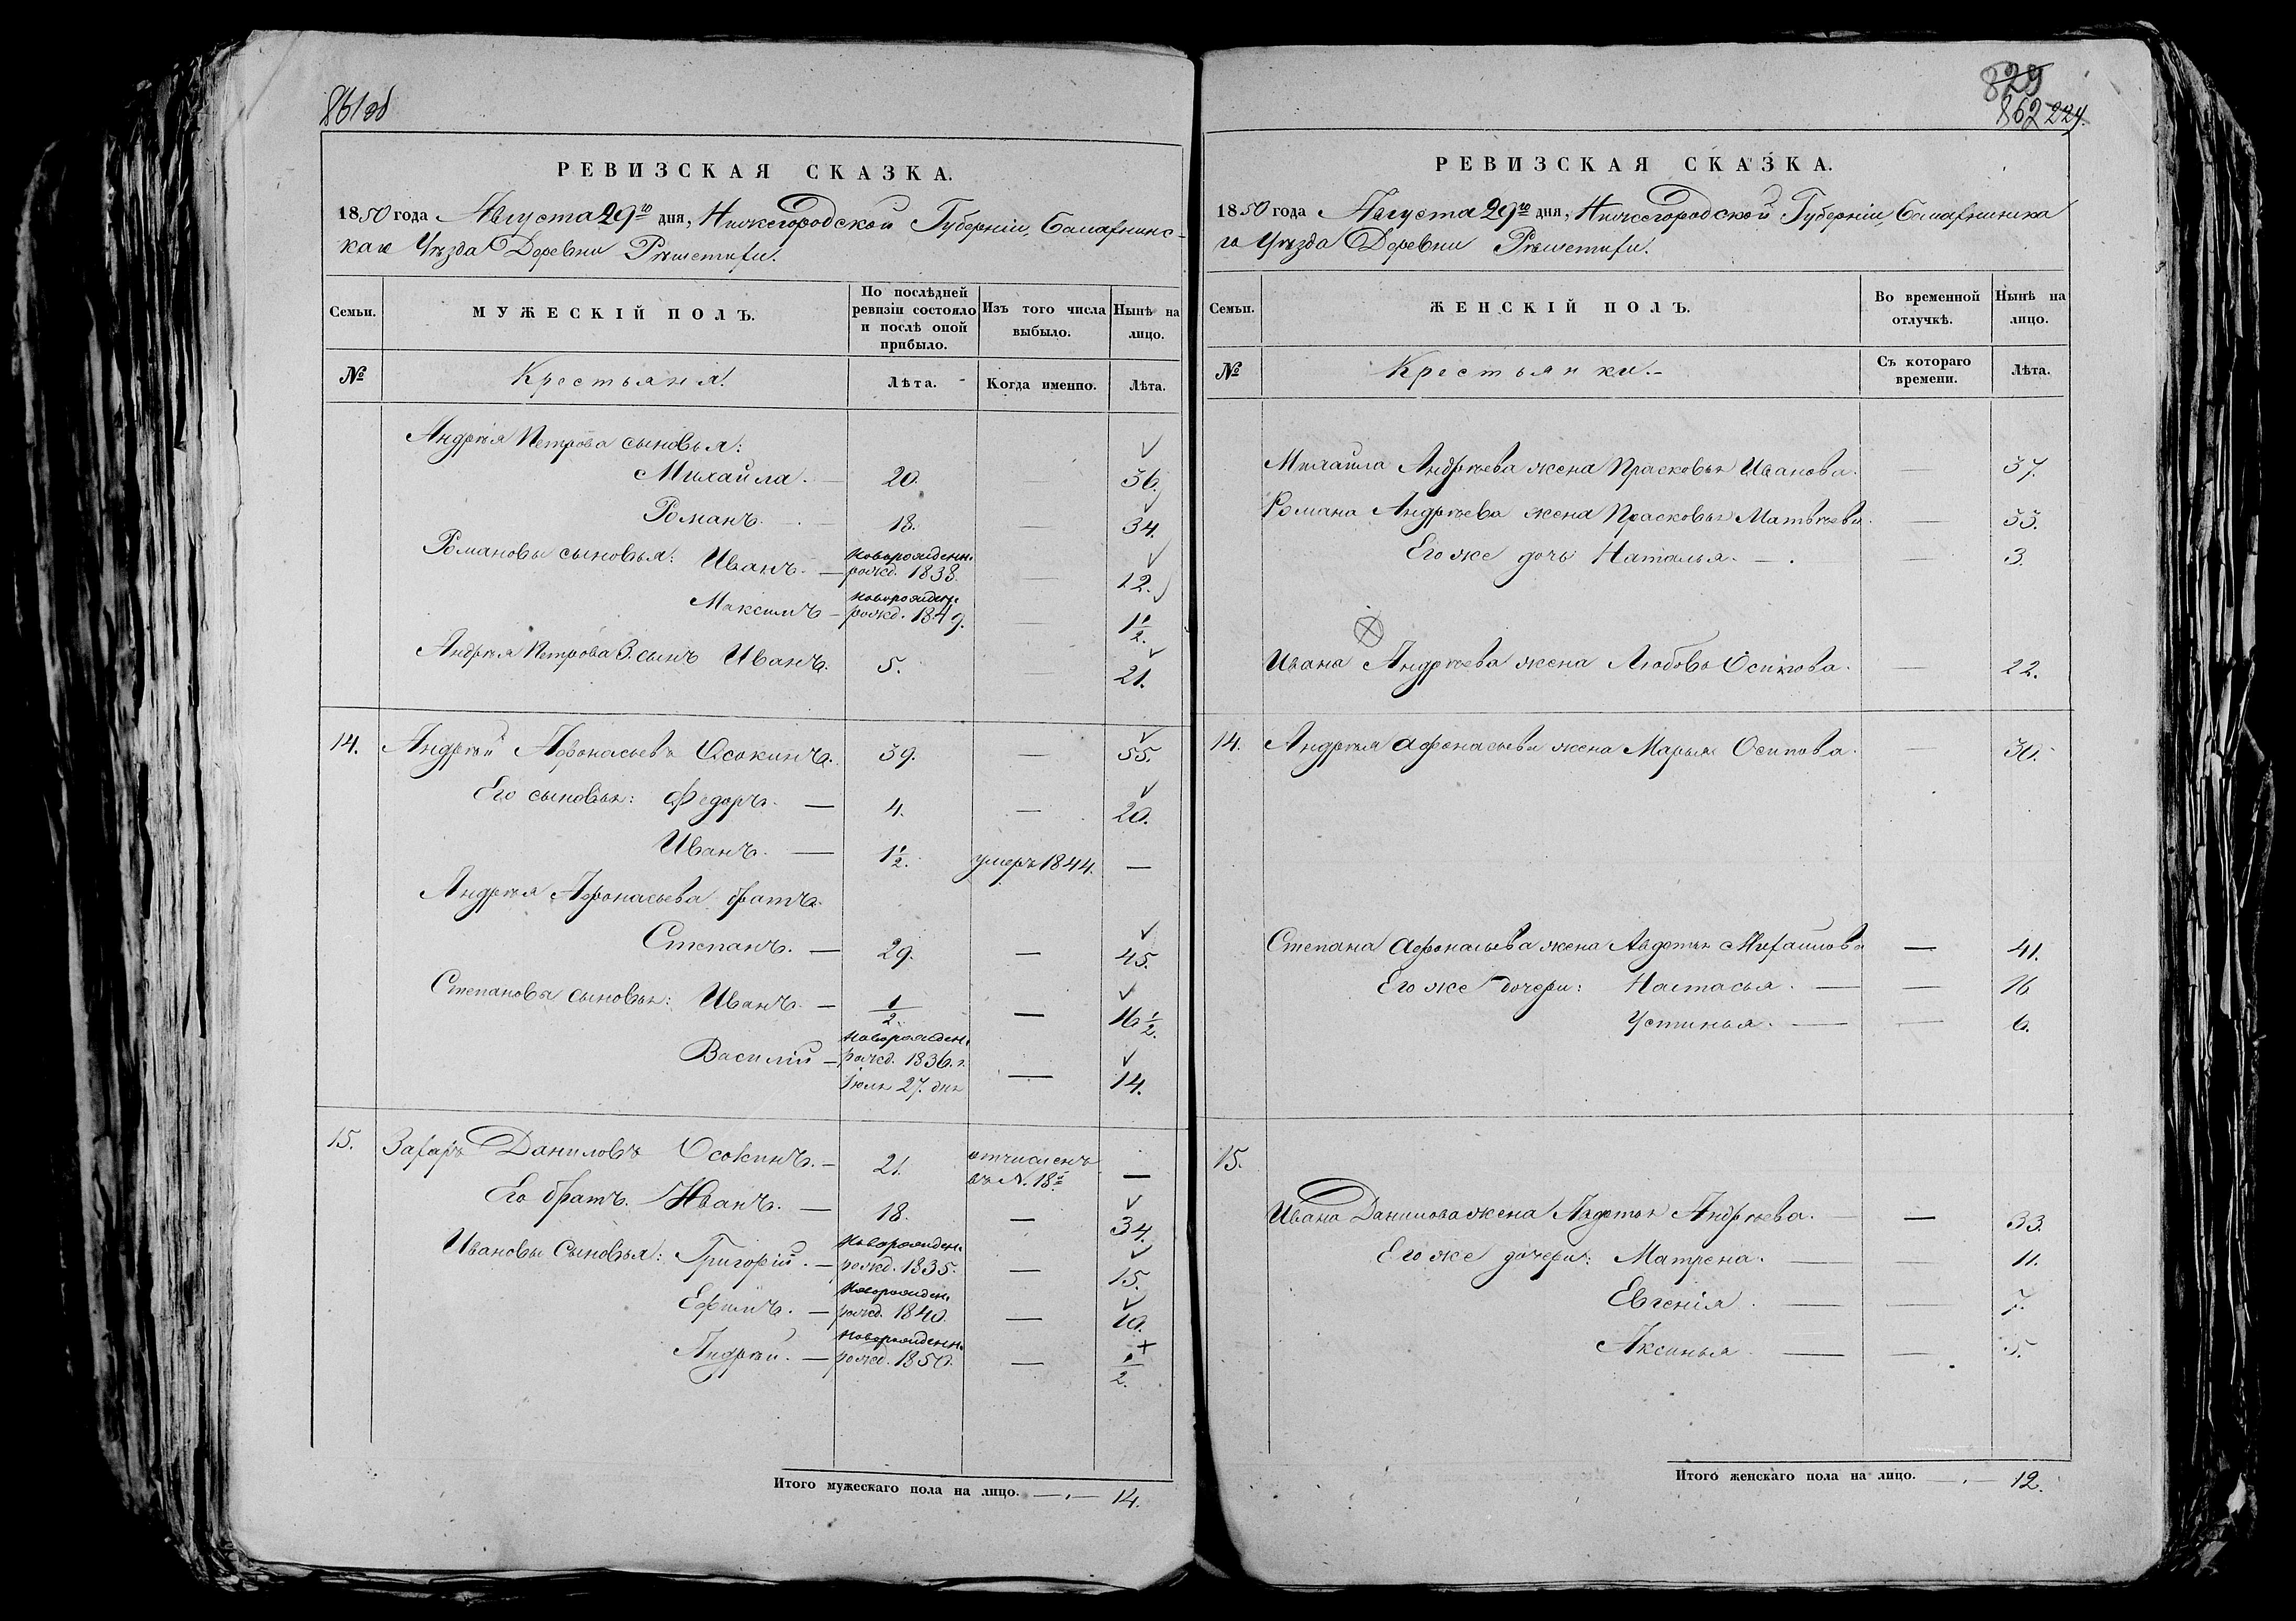 861об
РЕВИЗСКАЯ СКАЗКА.
1850 года Августа 29го дня, Нижегородской Губерніи, Балахнинс-
каго Уѣзда Деревни Рѣшетихи.
Семьи. МУЖЕСКІЙ ПОЛЪ. По послѣдней ревизіи состояло и послѣ оной прибыло. Изъ того числа выбыло. Нынѣ на лицо.
№ Крестьяня. Лѣта. Когда именно. Лѣта.
Андрѣя Петрова сыновья:
Михайла. 20. — 36.
Романъ. 18. — 34.
Романовы сыновья: Иванъ. — новорожденн. рожд. 1838. — 12.
Максимъ — новорожден. рожд. 1849. — 1 1/2.
Андрѣя Петрова 3. сынъ Иванъ. 5. — 21.
14. Андрѣй Афонасьевъ Осокинъ. 39. — 55.
Его сыновья: Федоръ. — 4. — 20.
Иванъ. — 1 1/2. умеръ 1844. —
Андрѣя Афонасьева братъ
Степанъ. — 29. — 45.
Степановы сыновья: Иванъ. — 1/2. — 16 1/2.
Василій — новорожден. рожд. 1836. г. Іюля 27. дня — 14.
15. Захаръ Даниловъ Осокинъ. — 21. отчисленъ въ N. 18й —
Его братъ. Иванъ. — 18. — 34.
Ивановы Сыновья: Григорій. — Новорожден. рожд. 1835. — 15.
Ефимъ. — Новорожден. рожд. 1840. — 10.
Андрѣй. — Новорожденн. рожд. 1850. — 1/2.
Итого мужескаго пола на лицо. — 14.
829
862 224.
РЕВИЗСКАЯ СКАЗКА.
1850 года Августа 29го дня, Нижегородской Губерніи, Балахнинска
го Уѣзда Деревни Рѣшетихи.
Семьи. ЖЕНСКІЙ ПОЛЪ. Во временной отлучкѣ. Нынѣ на лицо.
№ Крестьянки. Съ котораго времени. Лѣта.
Михаила Андрѣева жена Прасковья Иванова. — 37.
Романа Андрѣева жена Прасковья Матвѣева. — 33.
Его же дочь Наталья. — 3.
Ивана Андрѣева жена Любовь Осипова. — 22.
14. Андрѣя Афонасьева жена Марья Осипова. — 50.
Степана Афонасьева жена Авдотья Михайлова — 41.
Его же дочери: Настасья. — 16
Устинья. — 6.
15.
Ивана Данилова жена Авдотья Андрѣева. — 33.
Его же дочери: Матрена. — 11.
Евгенія. — 7.
Аксинья. — 5.
Итого женскаго пола на лицо. — 12.